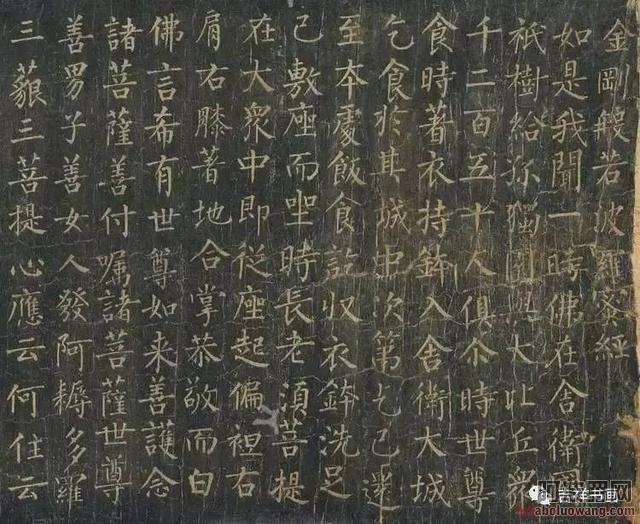 金剛般若波羅蜜經
如是我聞一時佛在舍衛國
祇樹給孤獨園與大比丘衆
千二百五十人俱尒時世尊
食時著衣持鉢入舍衛大城
乞食於其城中次第乞已還
至本處飯食訖収衣鉢洗足
已敷座而坐時長老須菩提
在大衆中即從座起偏袒右
肩右膝著地合掌恭敬而白
佛言希有世尊如来善護念
諸菩薩善付囑諸菩薩世尊
善男子善女人發阿耨多羅
三藐三菩提心應云何住云
吉祥书画
aboluowang.com